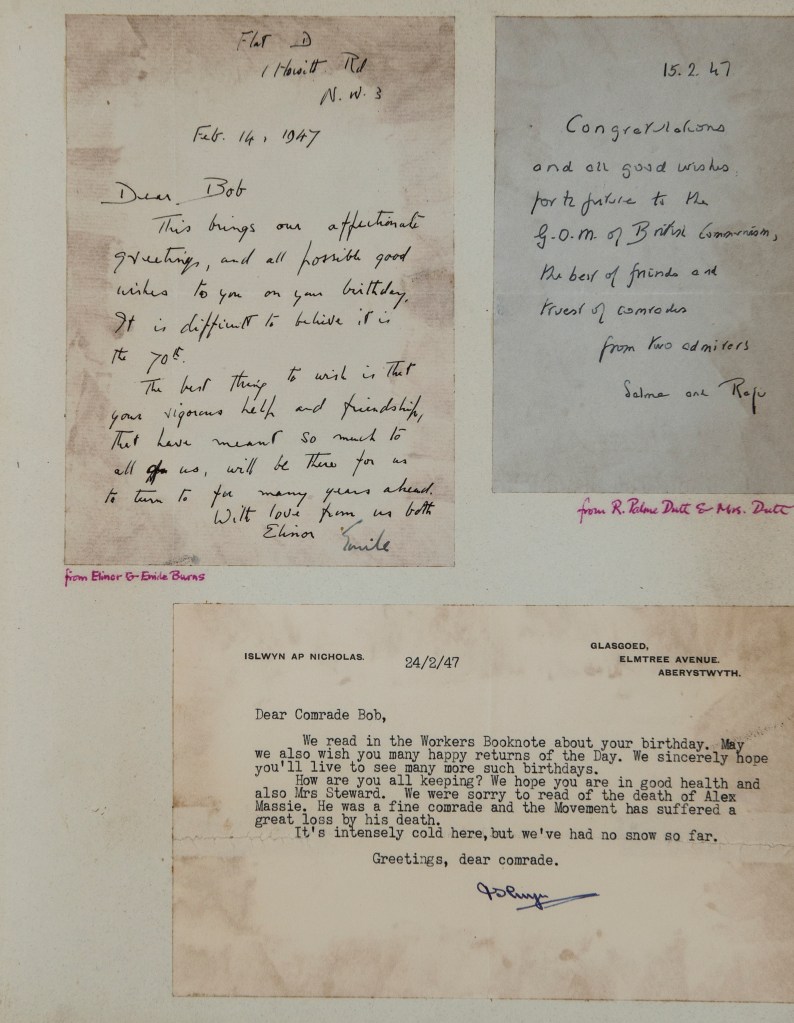 Flat D
1 Howitt Rd
N.W. 3
Feb. 14, 1947
Dear Bob
This brings our affectionate
greetings, and all possible good
wishes to you on your birthday.
It is difficult to believe it is
the 70th.
The best thing to wish is that
your vigorous help and friendship,
that have meant so much to
all of us, will be there for us
to turn to for many years ahead.
With love from us both
Elinor Emile
from Elinor & Emile Burns
15.2.47
Congratulations
and all good wishes
for the future to the
G.O.M. of British Communism,
the best of friends and
truest of comrades
from two admirers
Salme and Raji
from R. Palme Dutt & Mrs. Dutt
ISLWYN AP NICHOLAS.
24/2/47
GLASGOED,
ELMTREE AVENUE.
ABERYSTWYTH.
Dear Comrade Bob,
We read in the Workers Booknote about your birthday. May
we also wish you many happy returns of the Day. We sincerely hope
you'll live to see many more such birthdays.
How are you all keeping? We hope you are in good health and
also Mrs Steward. We were sorry to read of the death of Alex
Massie. He was a fine comrade and the Movement has suffered a
great loss by his death.
It's intensely cold here,but we've had no snow so far.
Greetings, dear comrade.
Islwyn